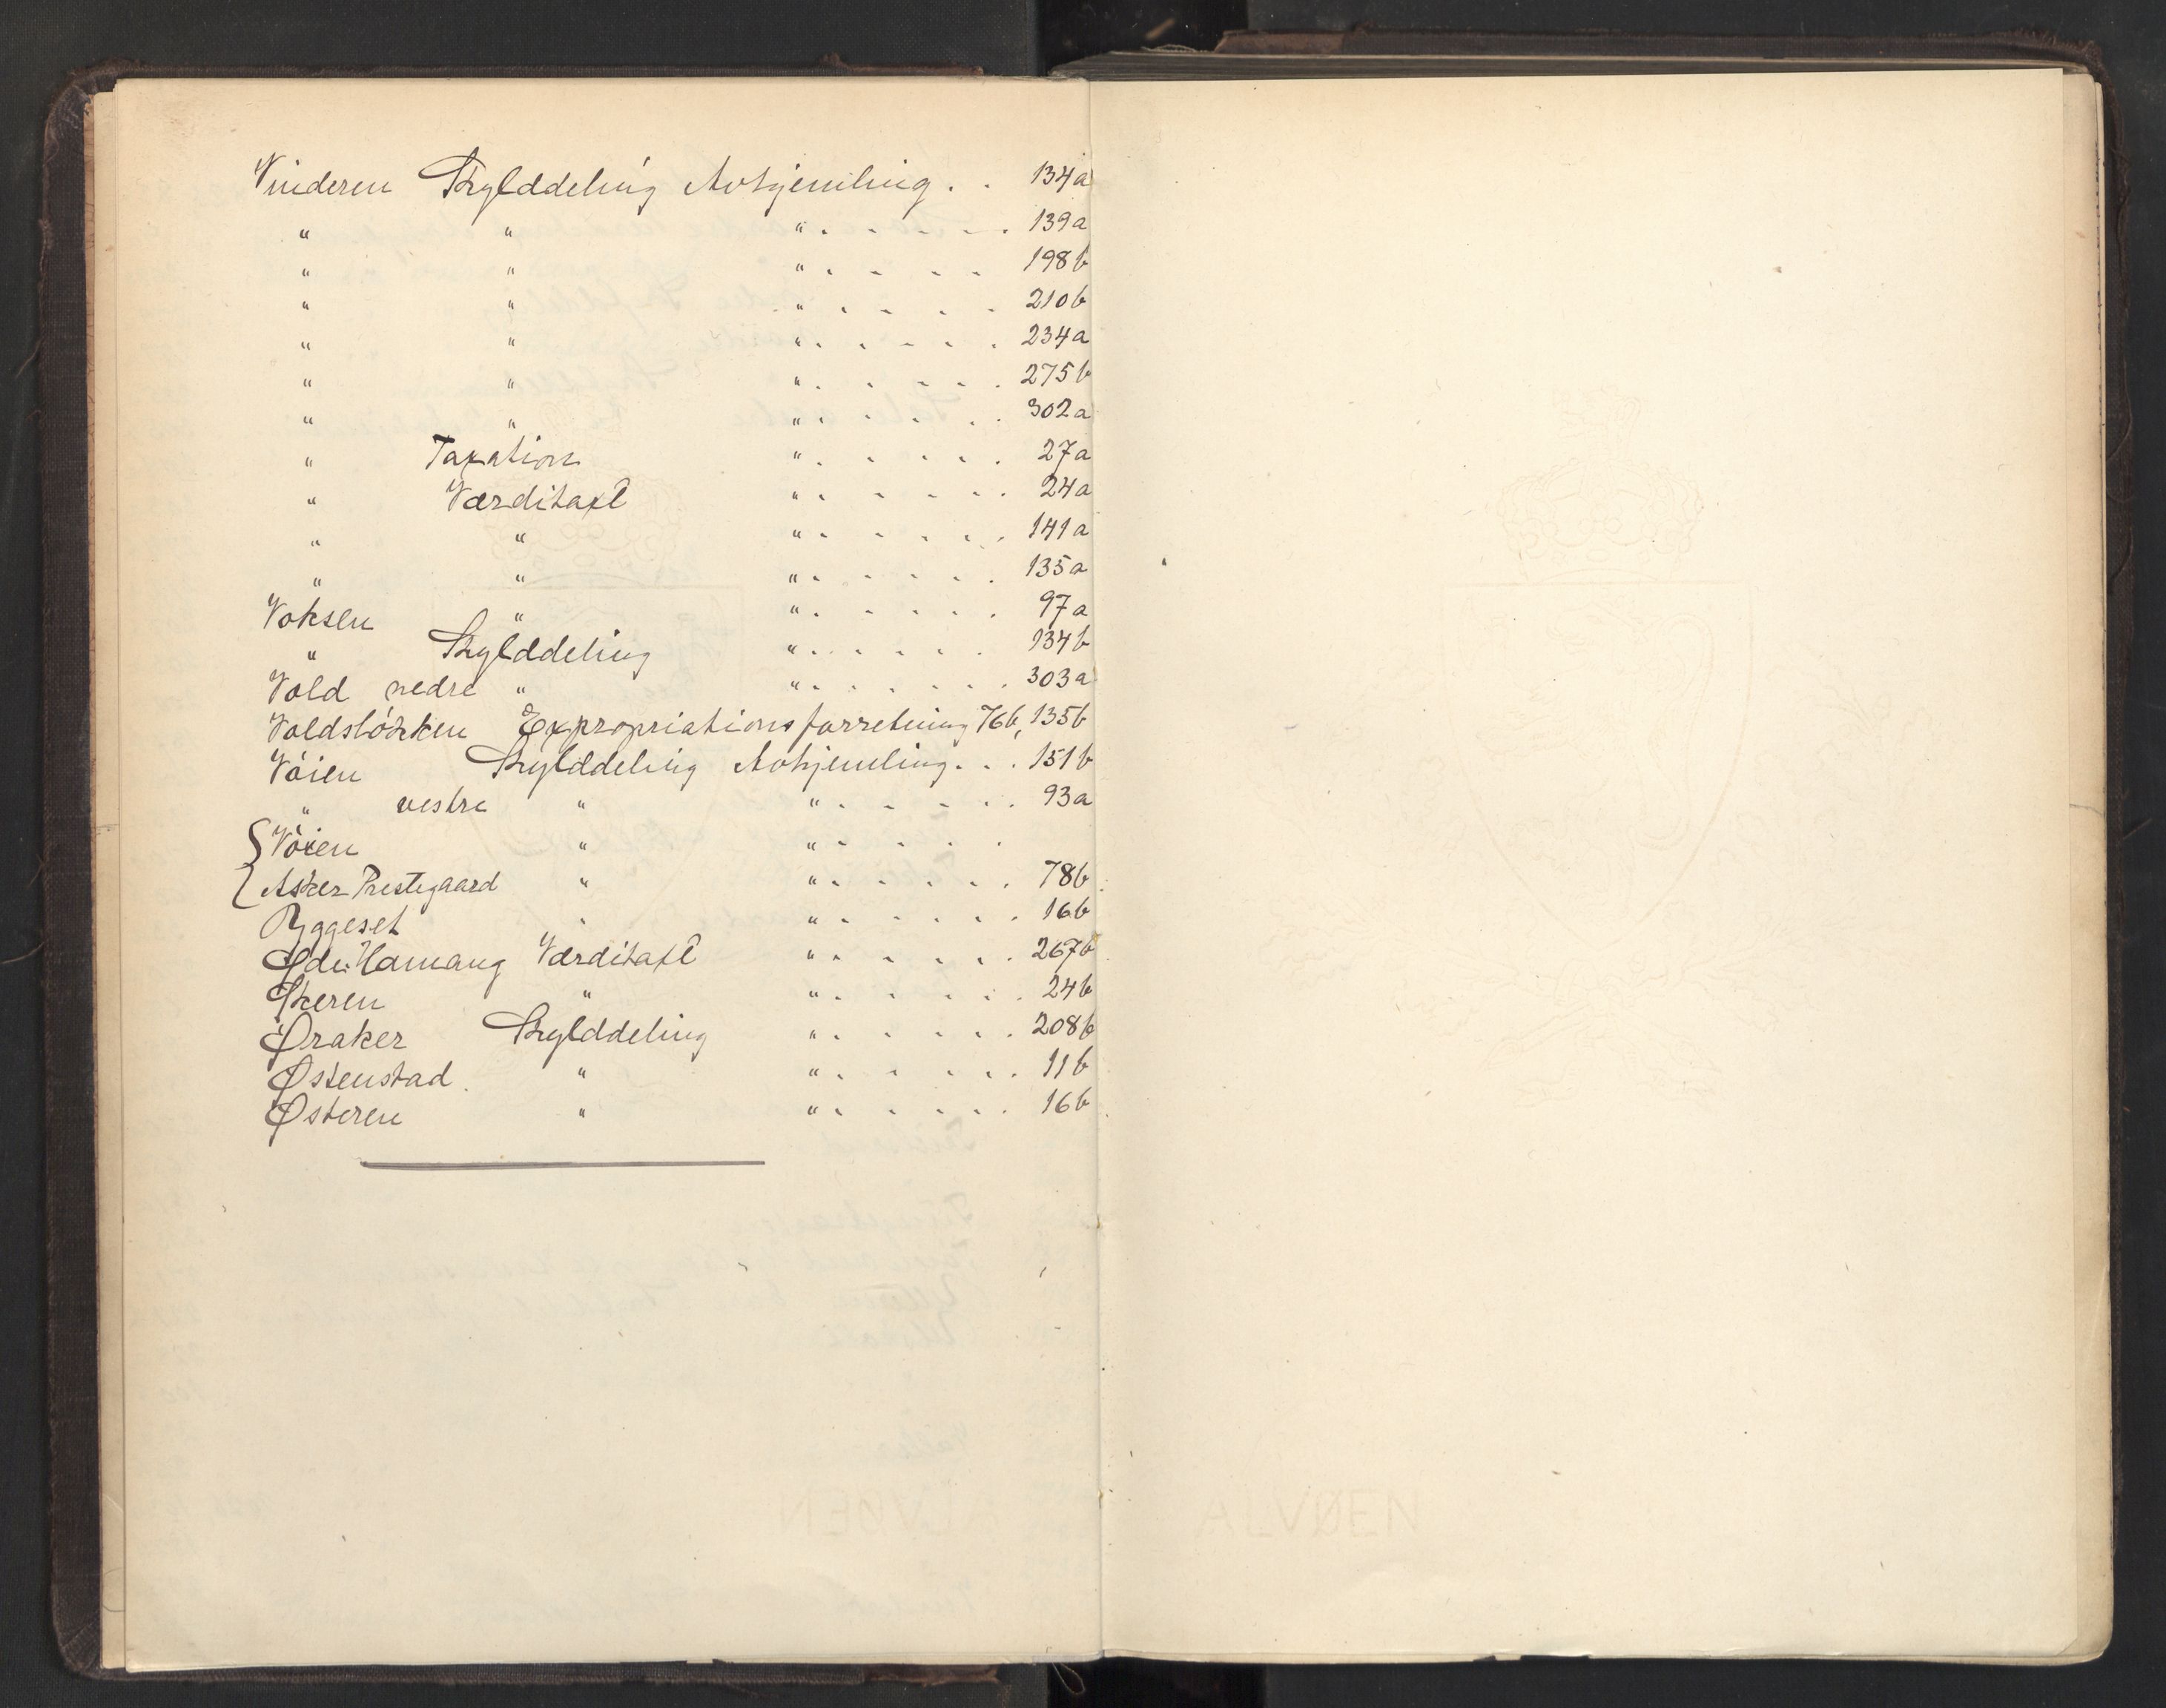 Vinderen Skylddeling Avhjemling . . 134a
" " " . . . . . 139a
" " " . . . . 198b
" " " . . . . . 210b
" " " . . . . . 234a
" " " . . . . . 275b
" " " . . . . . 302a
" Taxation " . . . . . 27a
" Værditaxt " . . . . . 24a
" " " . . . . . 141a
" " " . . . . . 135a
Voksen " " . . . . . 97a
" Skylddeling " . . . . . 134b
Vold nedre " " . . . . . . 303a
Voldsløkken Expropriationsforretning 76b, 135b
Vøien Skylddeling Avhjemling . . . 151b
" vestre " " . . . . . 93a
Vøien " " . . . . .
Asker Prestegaard " " . . . . . 78b
Yggeset " " . . . . . 16b
Hamang Værditaxt " . . . . . 267b
" " . . . . . 24b
Øraker Skylddeling " . . . . . 208b
Østenstad " " . . . . . 11b
Østeren " " . . . . . 16b
ALVØEN